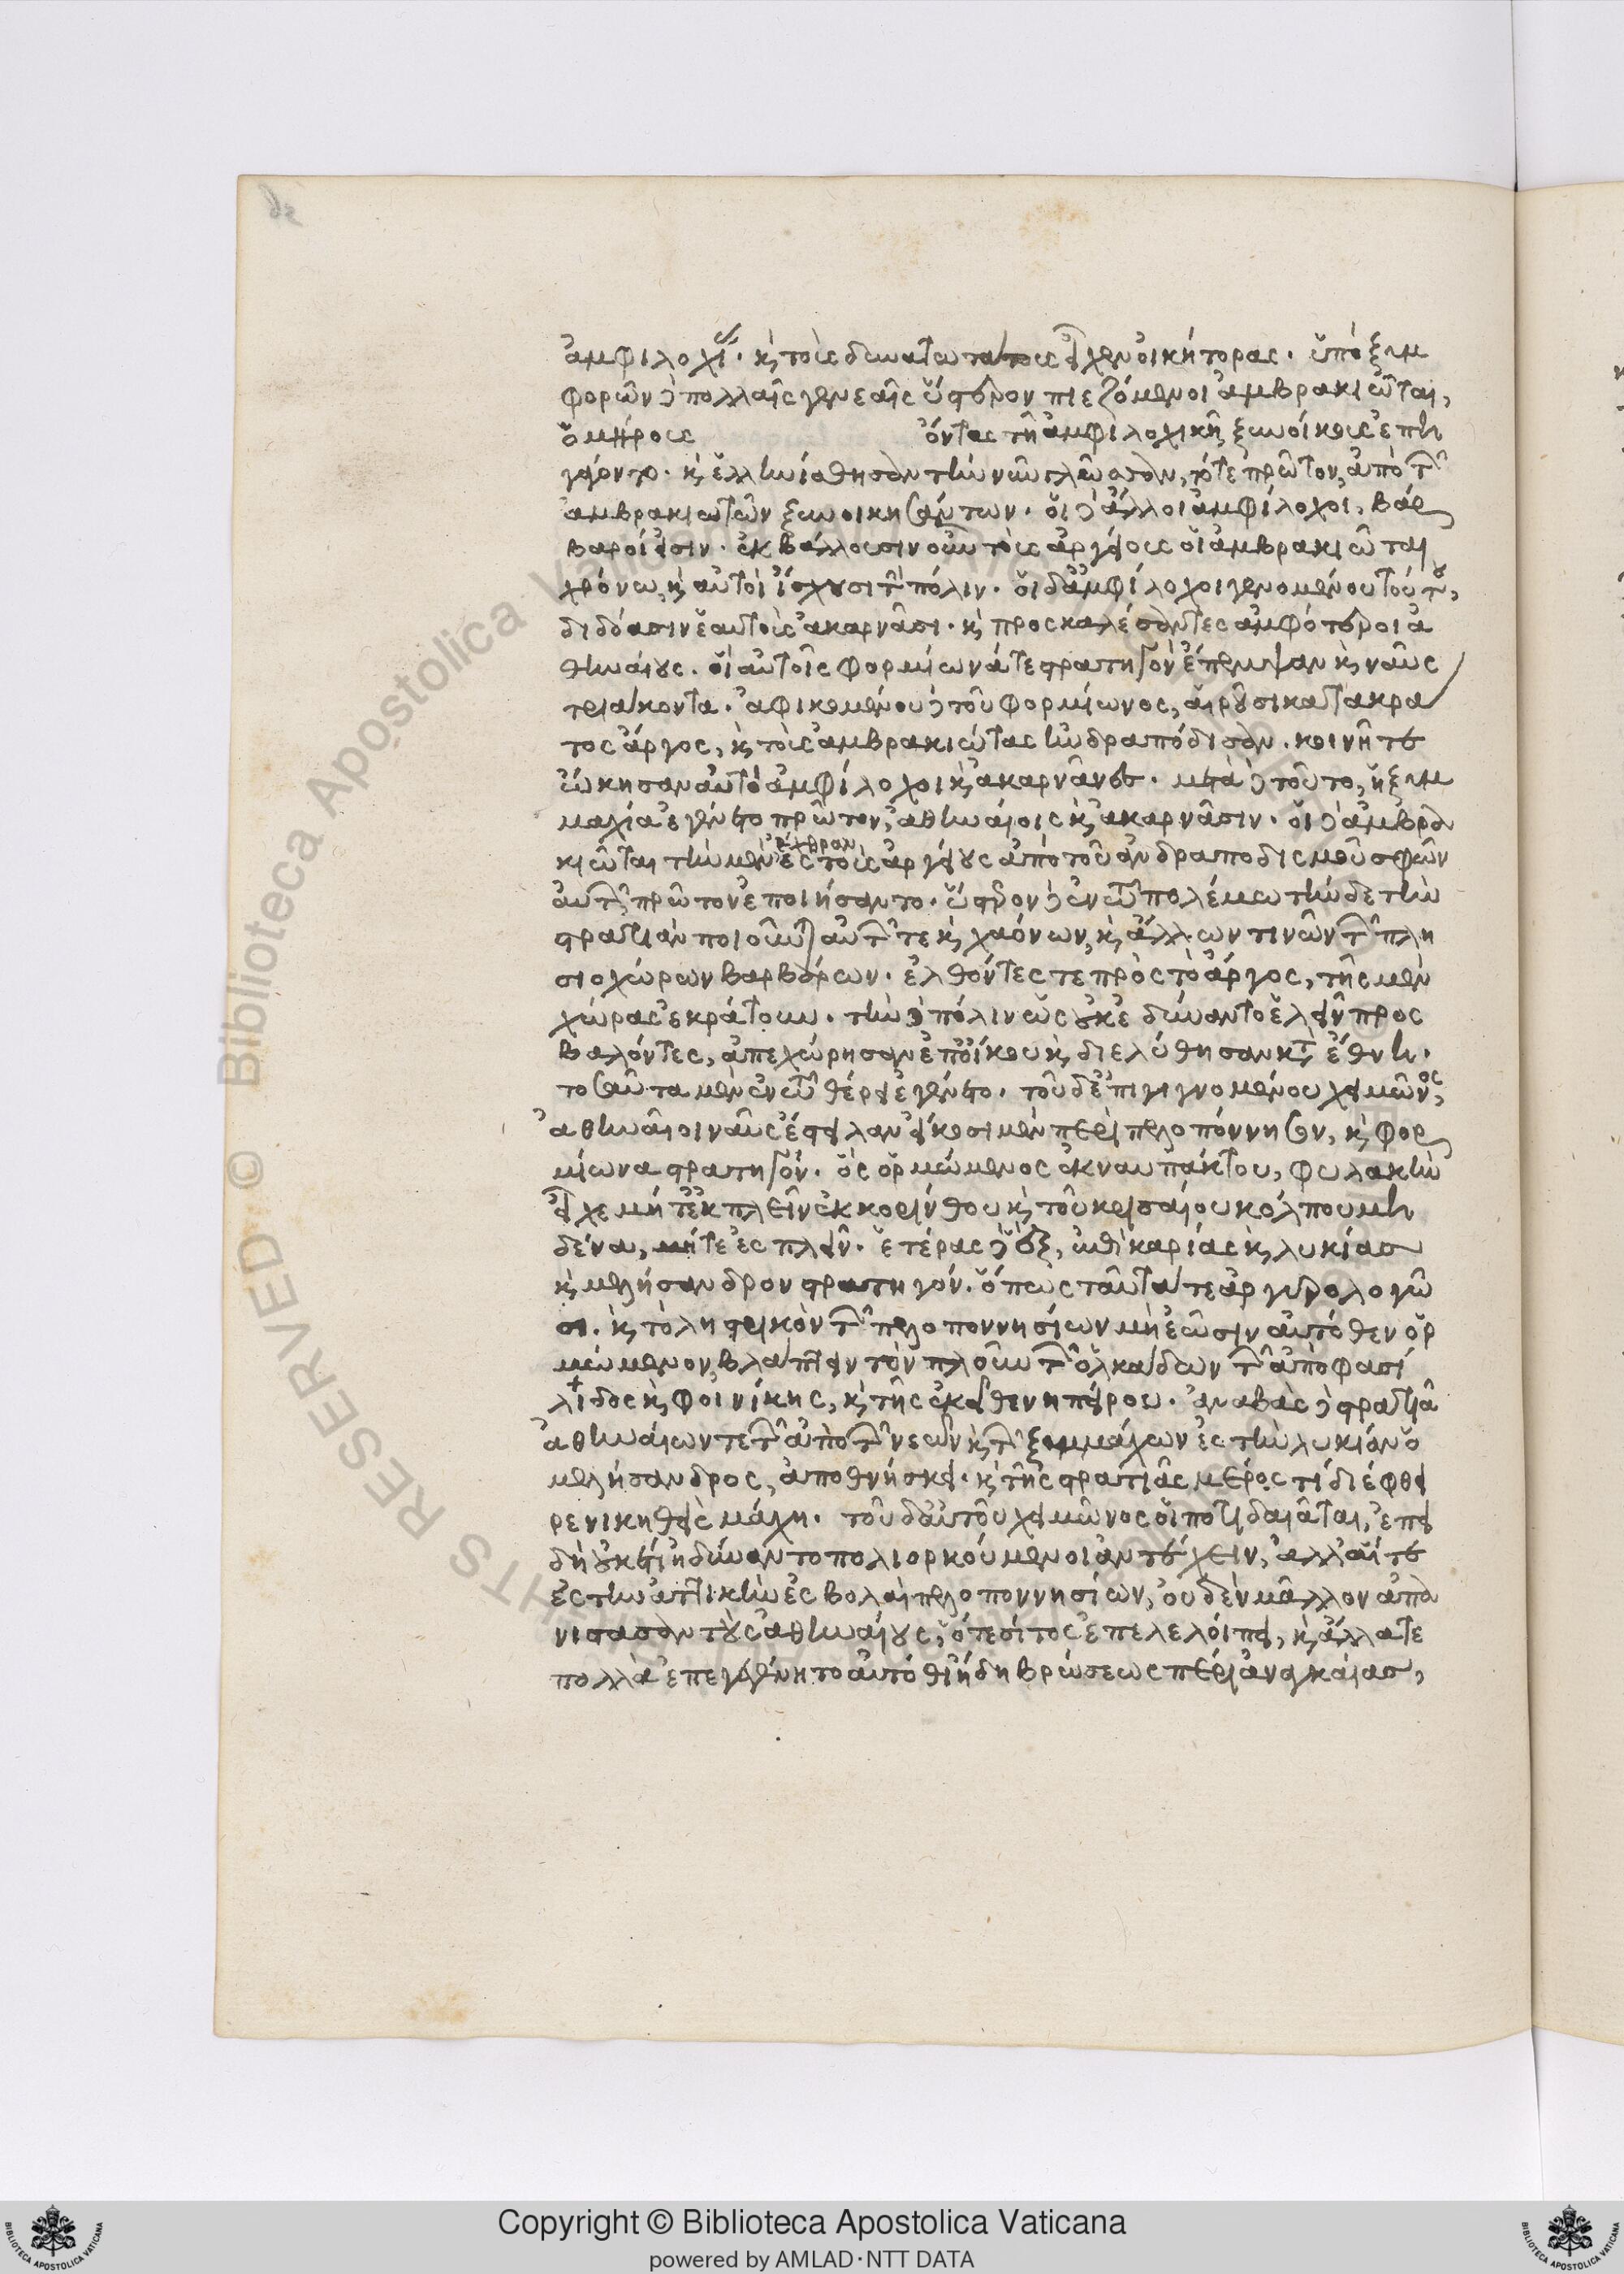 ἀμφιλοχί · κ̀ τοὺς δυνατωτάτους εἶχεν οἰκήτορας · ὑπὸ ξυμ
φορῶν δὲ πολλαῖς γενεαῖς ὕστερον πιεζόμενοι ἀμβρακιῶται,
ὁμήρους ὄντας τῆ ἀμφιλοχικῆ ξυνοίκους ἐπη
γάγοντο · κ̀ ἑλληνίσθησαν τὴν νῦν γλῶσσαν, τότε πρῶτον, ἀπὸ τῶν
ἀμβρακιωτῶν ξυνοικησάντων · οἱ δὲ ἄλλοι ἀμφίλοχοι, βάρ
βαροί εἰσιν · ἐκβάλλουσιν οὖν τοὺς ἀργείους οἱ ἀμβρακιῶται
χρόνω, κ̀ αὐτοὶ ἴσχουσι τὴν πόλιν · οἱ δ' ἀμφίλοχοι γενομένου τούτου,
διδόασιν ἑαυτοὺς ἀκαρνᾶσι · κ̀ προσκαλέσαντες ἀμφότεροι ἀ
θηναίους · οἳ αὐτοῖς φορμίωνά τε στρατηγὸν ἔπεμψαν κ̀ ναῦς
τριάκοντα · ἀφικομένου δὲ τοῦ φορμίωνος, αἱροῦσι κατὰ κρά
τος ἄργος, κ̀ τοὺς ἀμβρακιώτας ἠνδραπόδισαν · κοινῆ τε
ὤκησαν αὐτὸ ἀμφίλοχοι κ̀ ἀκαρνᾶνες · μετὰ δὲ τοῦτο, ἡ ξυμ
μαχία ἐγένετο πρῶτον, ἀθηναίοις κ̀ ἀκαρνᾶσιν · οἱ δὲ ἀμβρα
κιῶται τὴν μὲν ἔχθραν ἐς τοὺς ἀργείους ἀπὸ τοῦ ἀνδραποδισμοῦ σφῶν
αὐτῶν πρῶτον ἐποιήσαντο · ὕστερον δὲ ἐν τῶ πολέμω τήνδε τὴν
στρατιὰν ποιοῦνται αὐτῶν τε κ̀ χαόνων, κ̀ ἄλλων τινῶν τῶν πλη
σιοχώρων βαρβάρων · ἐλθόντες τε πρὸς τὸ ἄργος, τῆς μὲν
χώρας ἐκράτουν · τὴν δὲ πόλιν ὡς οὐκ ἐδύναντο ἑλεῖν προσ
βαλόντες, ἀπεχώρησαν ἐπ' οἴκου κ̀ διελύθησαν κτ̀ ἔθνη ·
τοσαῦτα μὲν ἐν τῶ θέρει ἐγένετο · τοῦ δ' ἐπιγιγνομένου χειμῶνος,
ἀθηναῖοι ναῦς ἔστειλαν εἴκοσι μὲν περὶ πελοπόννησον, κ̀ φορ
μίωνα στρατηγόν · ὃς ὁρμώμενος ἐκ ναυπάκτου, φυλακὴν
εἶχε μήτ' ἐκπλεῖν ἐκ κορίνθου κ̀ τοῦ κρισαίου κόλπου μη
δένα, μήτε ἐσπλεῖν · ἑτέρας δὲ ἓξ, ἐπὶ καρίας κ̀ λυκίας
κ̀ μελήσανδρον στρατηγόν · ὅπως ταῦτά τε ἀργυρολογῶ
σι · κ̀ τὸ ληστρικὸν τῶν πελοποννησίων μὴ ἐῶσιν αὐτόθεν ὁρ
μώμενον, βλάπτειν τὸν πλοῦν τῶν ὁλκάδων τῶν ἀπὸ φασί
λιδος κ̀ φοινίκης, κ̀ τῆς ἐκεῖθεν ηπείρου · ἀναβὰς δὲ στρατιᾶ
ἀθηναίων τε τῶν ἀπὸ τῶν νεῶν κ̀ τῶν ξυμμάχων ἐς τὴν λυκίαν ὁ
μελήσανδρος, ἀποθνήσκει · κ̀ τῆς στρατιᾶς μέρος τί διέφθει
ρε νικηθεὶς μάχη · τοῦ δ' αὐτοῦ χειμῶνος οἱ ποτιδαιᾶται, ἐπει
δὴ οὐκέτι ἠδύναντο πολιορκούμενοι ἀντέχειν, ἀλλ' αἵ τε
ἐς τὴν ἀττικὴν ἐσβολαὶ πελοποννησίων, οὐδὲν μᾶλλον ἀπα
νίστασαν τοὺς ἀθηναίους, ὅ τε σῖτος ἐπελελοίπει, κ̀ ἄλλα τε
πολλὰ ἐπεγεγένητο αὐτόθι ἤδη βρώσεως πέρι ἀναγκαίας,
Copyright © Biblioteca Apostolica Vaticana
powered by AMLAD·NTT DATA